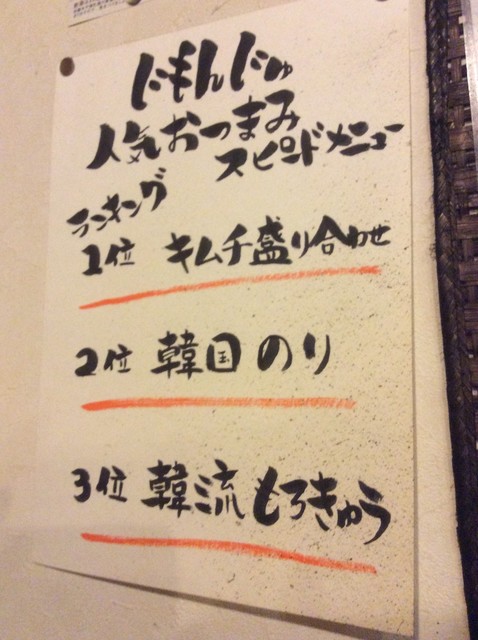 にもんじゅ
人気おつまみ
スピードメニュー
ランキング
1位 キムチ盛り合わせ
2位 韓国のり
3位 韓流もろきゅう